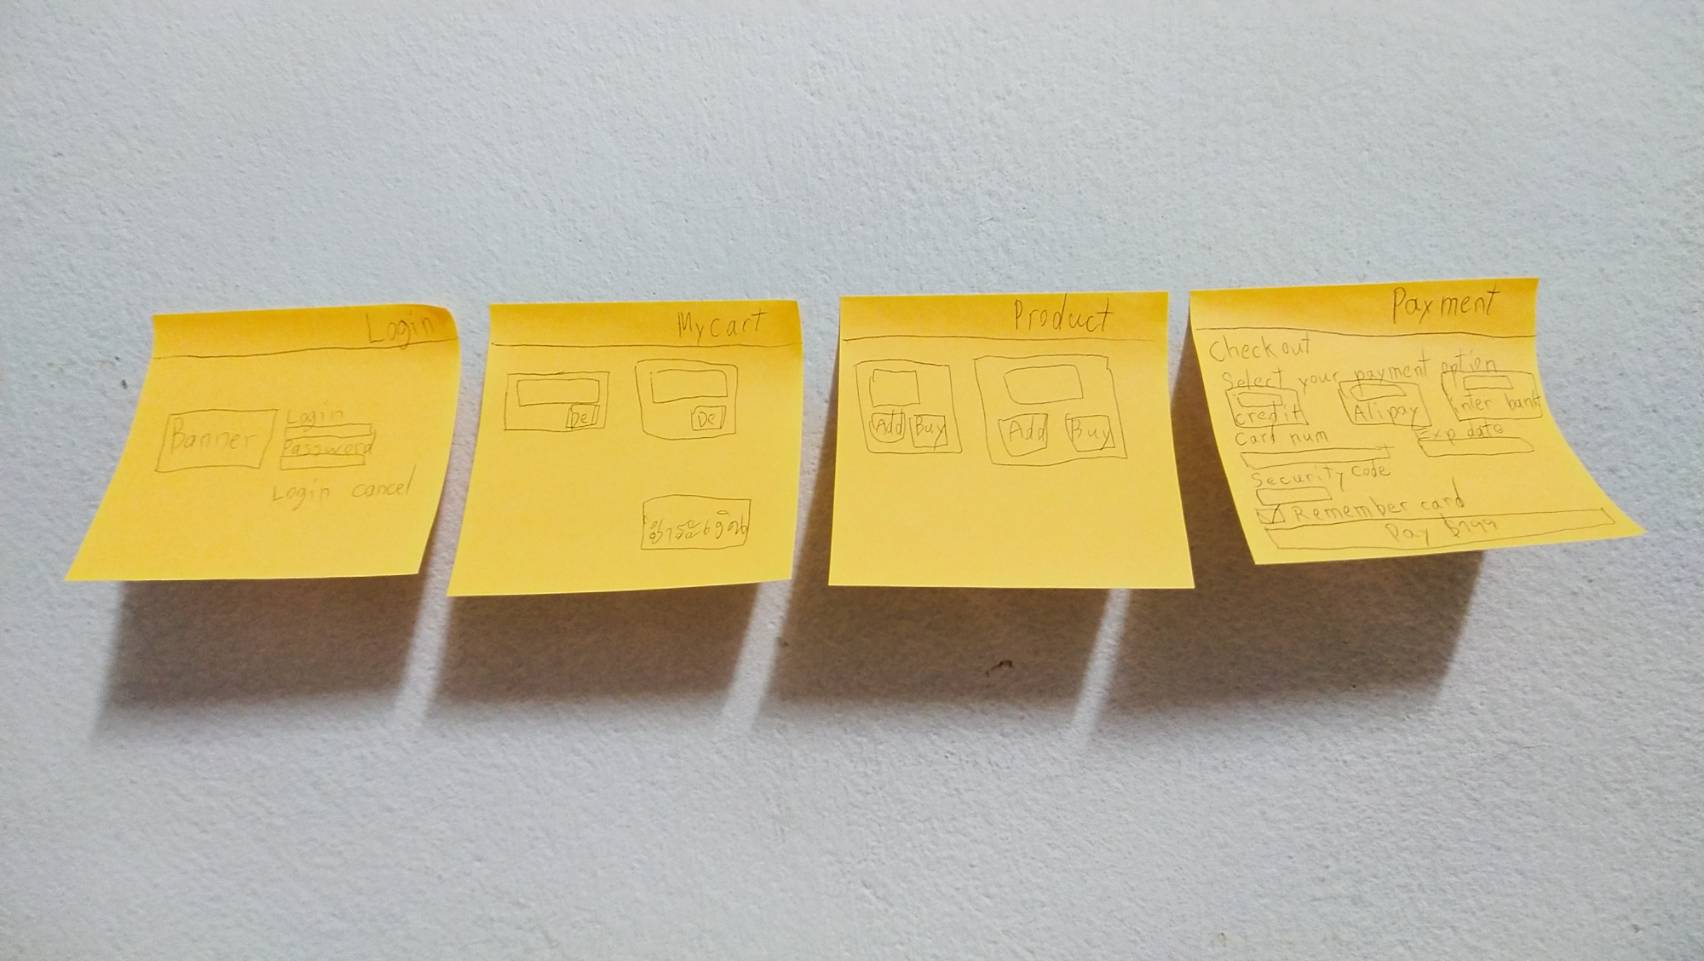 Login
Banner
Login
Password
Login cancel
My cart
De
De
ชำระเงิน
Product
Add Buy
Add Buy
Payment
Checkout
Select your payment option
credit Alipay Inter bank
Card num Exp date
Security code
Remember card
Pay $799